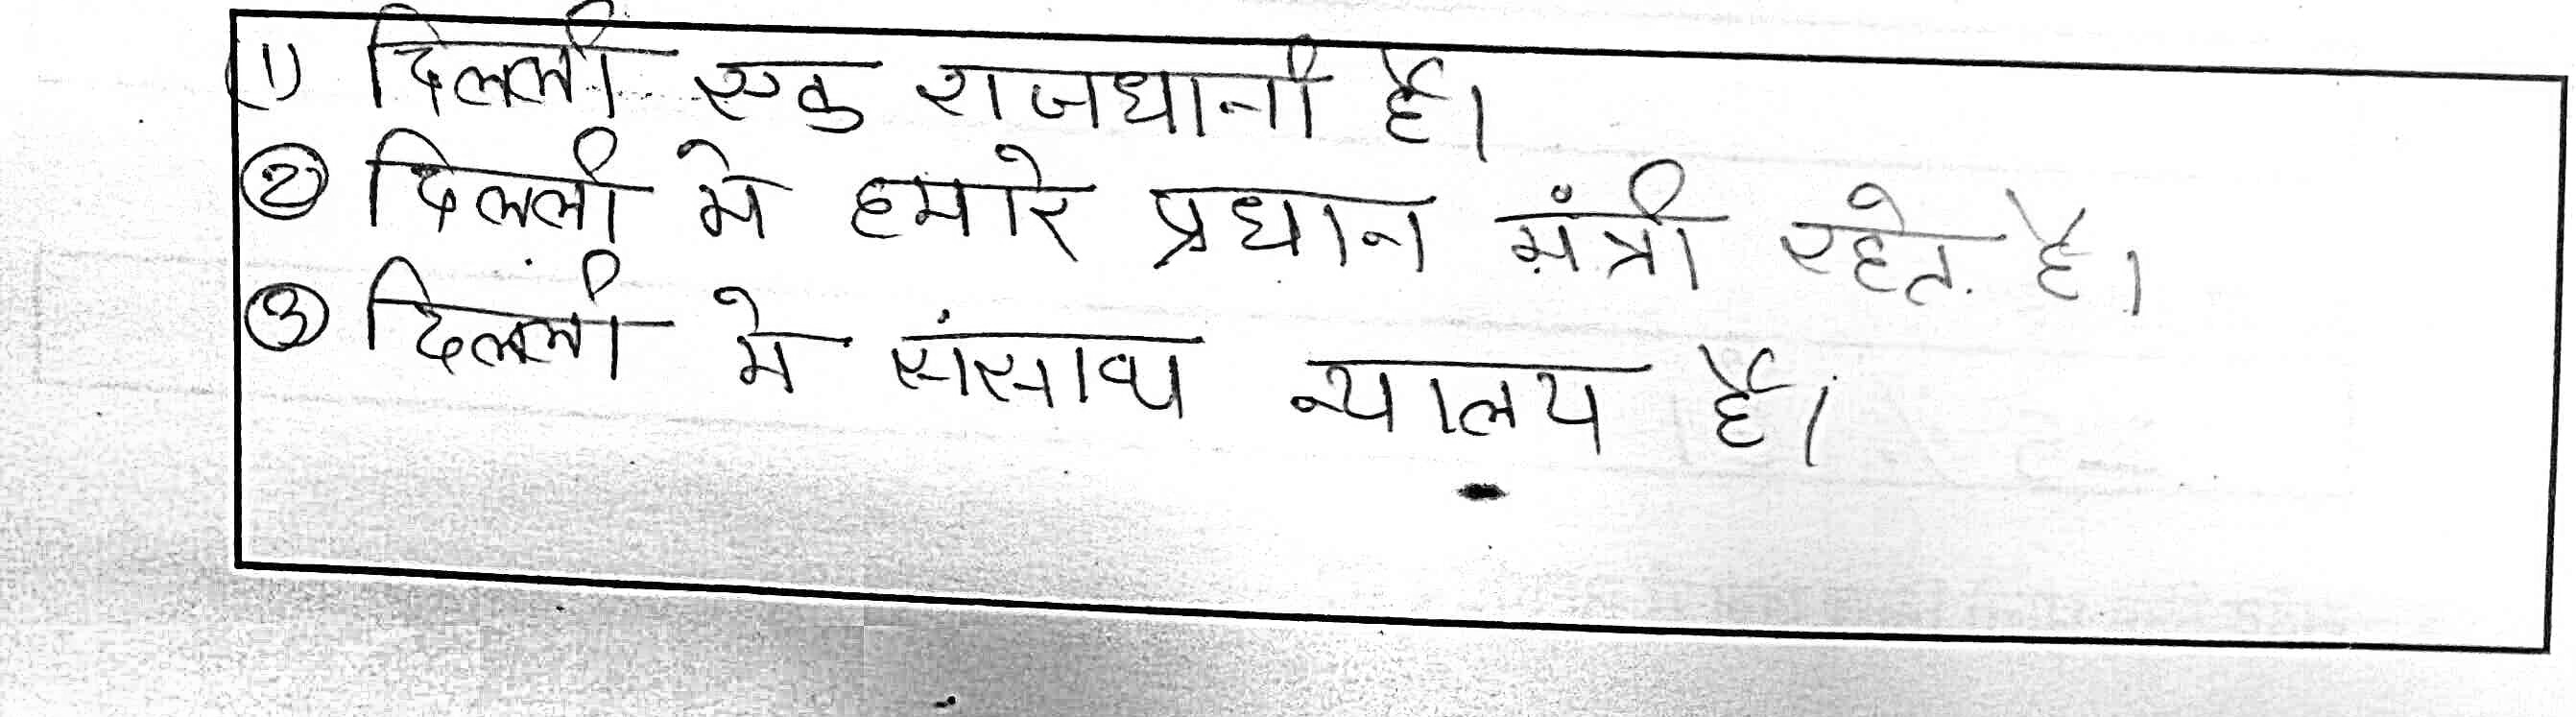 (1) दिलली एक राजधानी है।
② दिलली मे हमारे प्रधान मंत्री रहेत है।
③ दिलली मे न्यालय है।